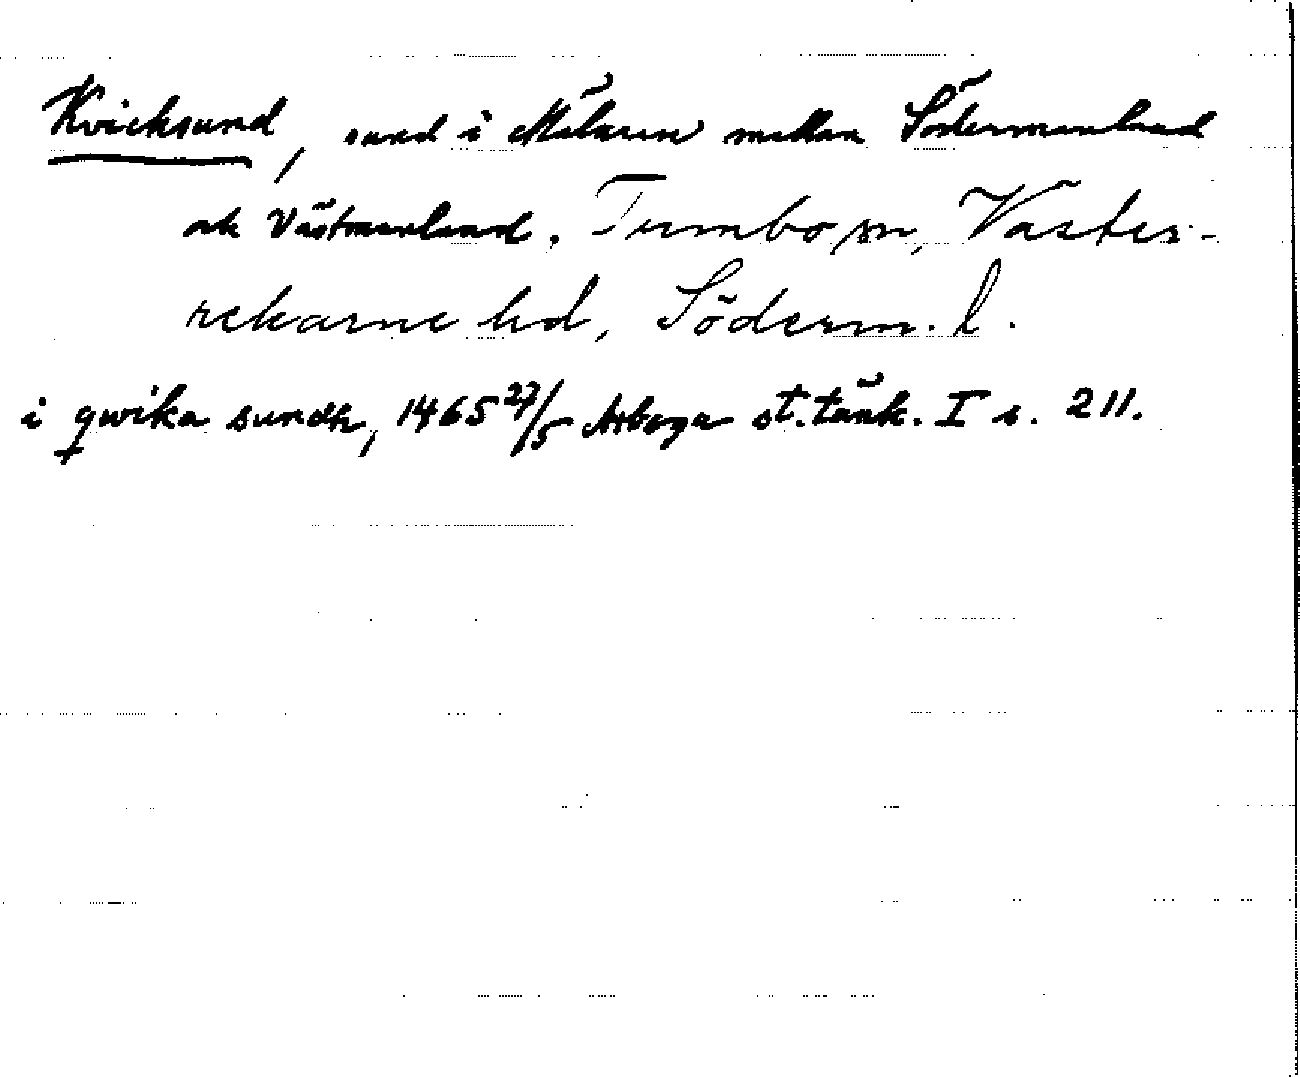 Kvicksund, sund i Mälaren mellan Södermanland
ock Västmanland. Tumbo sn, Väster-
rekarne hd, Söderm. l.
i qwika sundh, 1465 27/5 Arboga st. tänk. I s. 211.